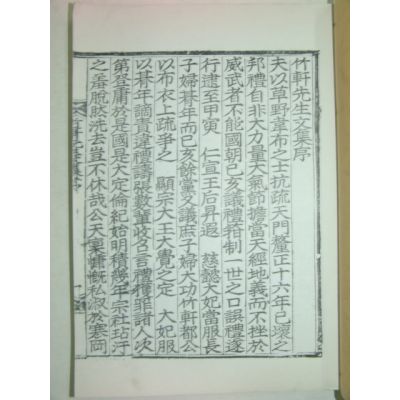 竹軒先生文集序
夫以草野韋布之士抗疏天門釐正十六年已壞之
邦禮自非大力量大氣節擔當天經地義而不挫於
威武者不能國朝己亥議禮箝制一世之口誤禮遂
行逮至甲寅 仁宣王后昇遐 慈懿大妃當服長
子婦朞年而己亥餘黨又議庶子婦大功竹軒都公
以布衣上疏爭之 顯宗大王大覺之定 大妃服
以朞年謫貶違禮諸張數輩收召言禮獲罪諸人次
第登庸於是國是大定倫紀始明積幾年 宗社玷汙
之羞脫然洗去豈不休哉公天稟慷慨私淑於寒岡